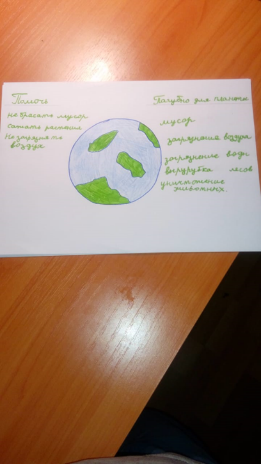 Помочь
не бросать мусор
Сажать растения
Не загрязнять
воздух
Пагубно для планеты
мусор
загрязнение воздуха
загрязнение воды
вырурубка лесов
уничтожение
животных.